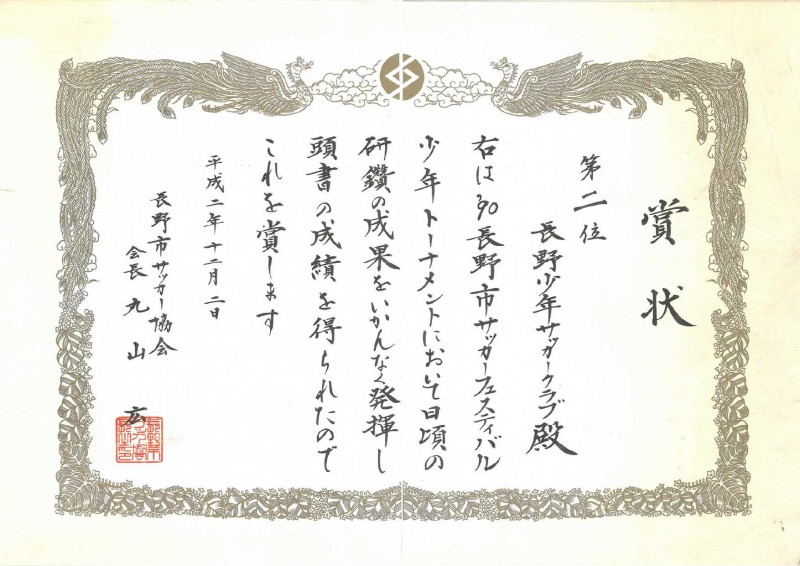 賞状
第二位
長野少年サッカークラブ殿
右は'90長野市サッカーフェスティバル
少年トーナメントにおいて日頃の
研鑽の成果をいかんなく発揮し
頭書の成績を得られたので
これを賞します
平成二年十二月二日
長野市サッカー協会
会長 丸山 玄